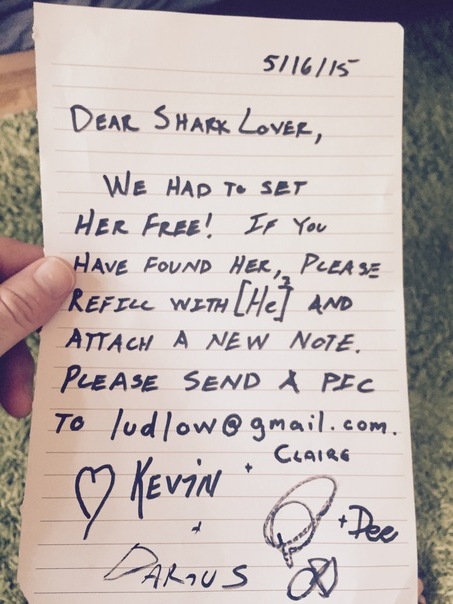 5/16/15
DEAR SHARK LOVER,
WE HAD TO SET
HER FREE! IF YOU
HAVE FOUND HER, PLEASE
REFILL WITH [He]² AND
ATTACH A NEW NOTE.
PLEASE SEND A PIC
TO ludlow@gmail.com.
♡ KEVIN + CLAIRE
+ DARIUS + Dee